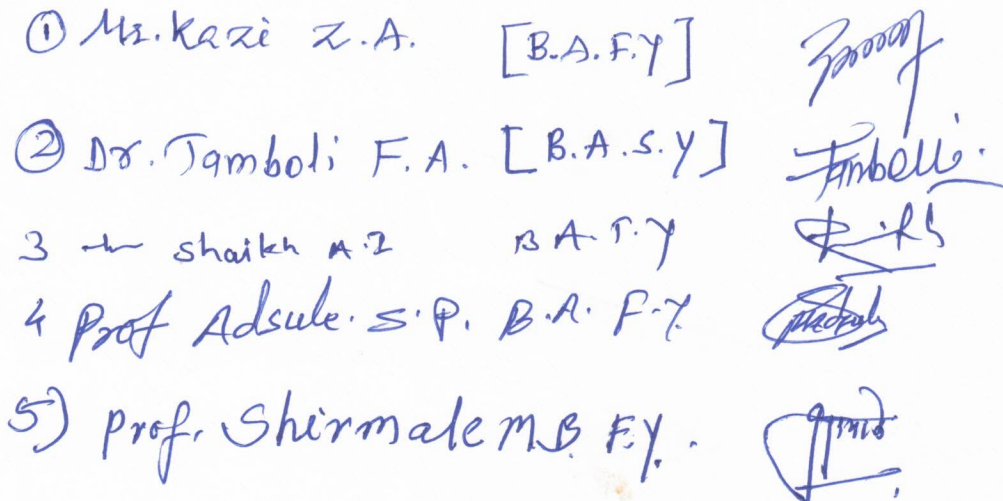 ① Mr. Kazi Z.A. [B.A.F.Y]
② Dr. Tamboli F.A. [B.A.S.Y] Tambolli.
3 Shaikh A.I B A.T.Y Shaikh
4 Prof Adsule. S.P. B.A. F.Y.
5) Prof. Shirmale M.B. F.Y.